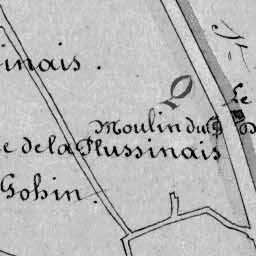 inais.
Le
Moulin du
e de la Flussinais
Gohin.